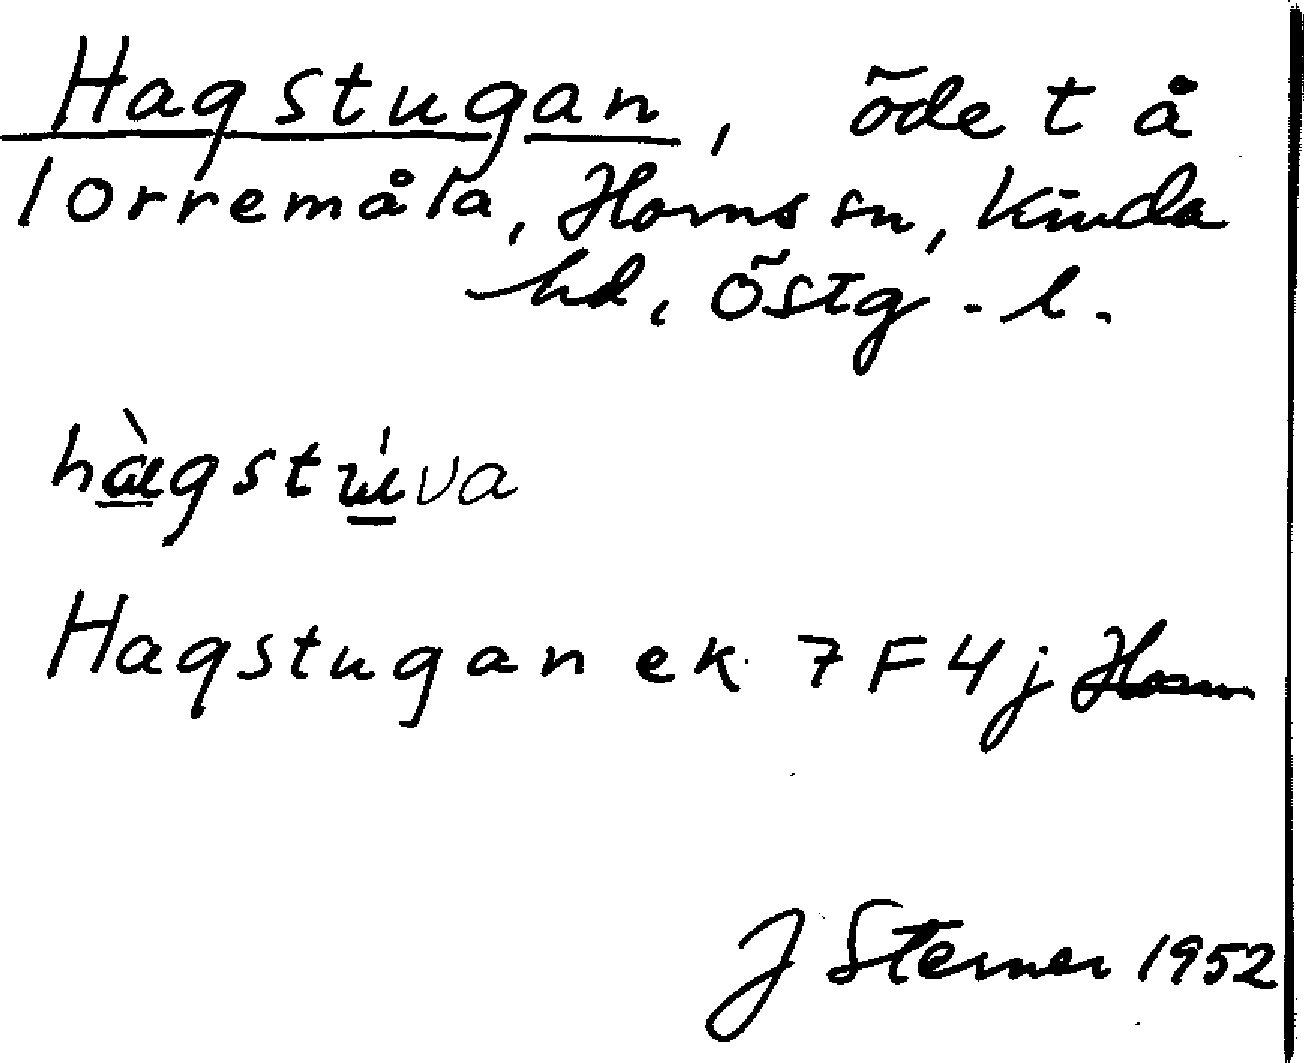 Hagstugan, öde t å
Torremåla, Horns sn, Kinda
hd, Östg. l.
hàgstúva
Hagstugan ek 7F4j Horn
J Sterner 1952